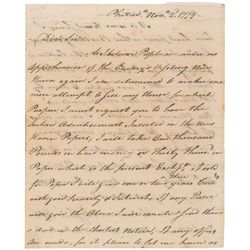 Philad.ª Nov.r 2. 1779
Dear Sir
As believe People are under no
Apprehension of the Enemys Visiting New
Haven again I am determined to make one
more attempt to sell my House for which
Purpose I must request you to have the
Inclosed Advertisement Inserted in the New
Haven Papers, I will take One thousand
Pounds in hard money or Thirty thous.d in
Paper which is the present Exch.e, if sold
for Paper I will give one or two Years Credit
with good Security & Interest. If any Person
will give the Above I will
a deed on the Shortest Notice, If any offer
are made, for it please to let me know as